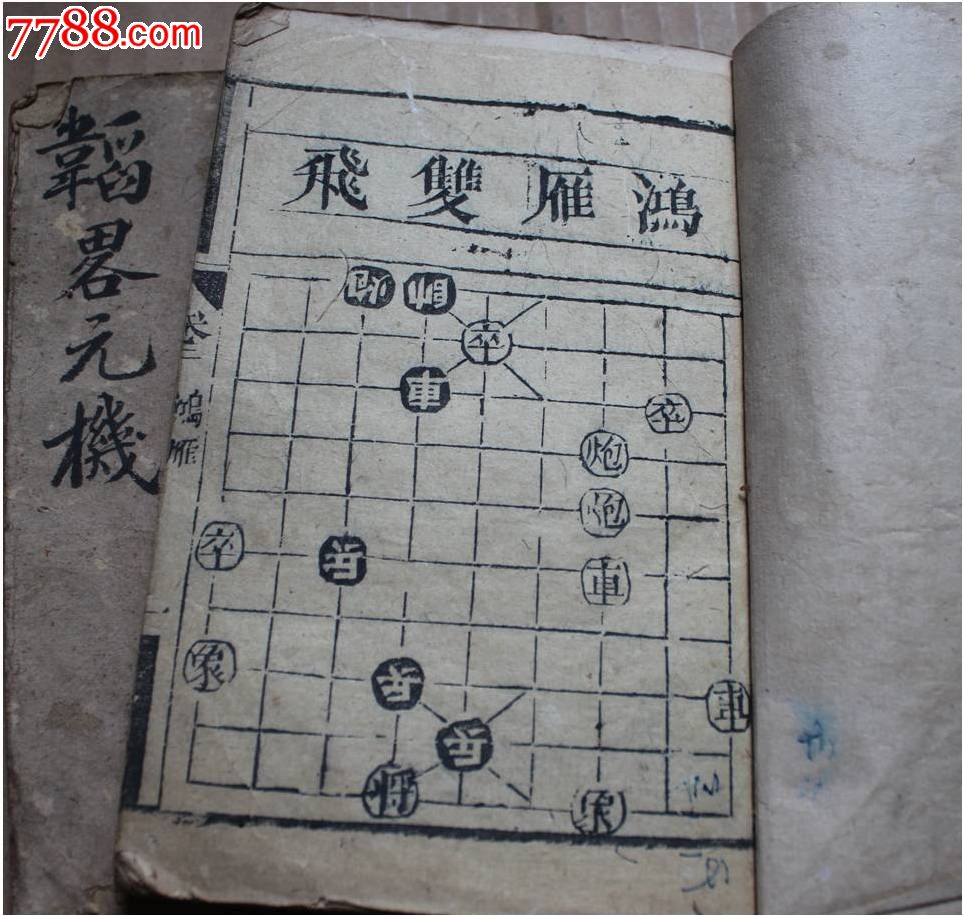 7788.com
韜畧元機
鴻雁雙飛
卷二
鴻雁
炮 帥
卒
車 卒
炮
炮
卒 兵 車
象 兵 車
兵
將 象